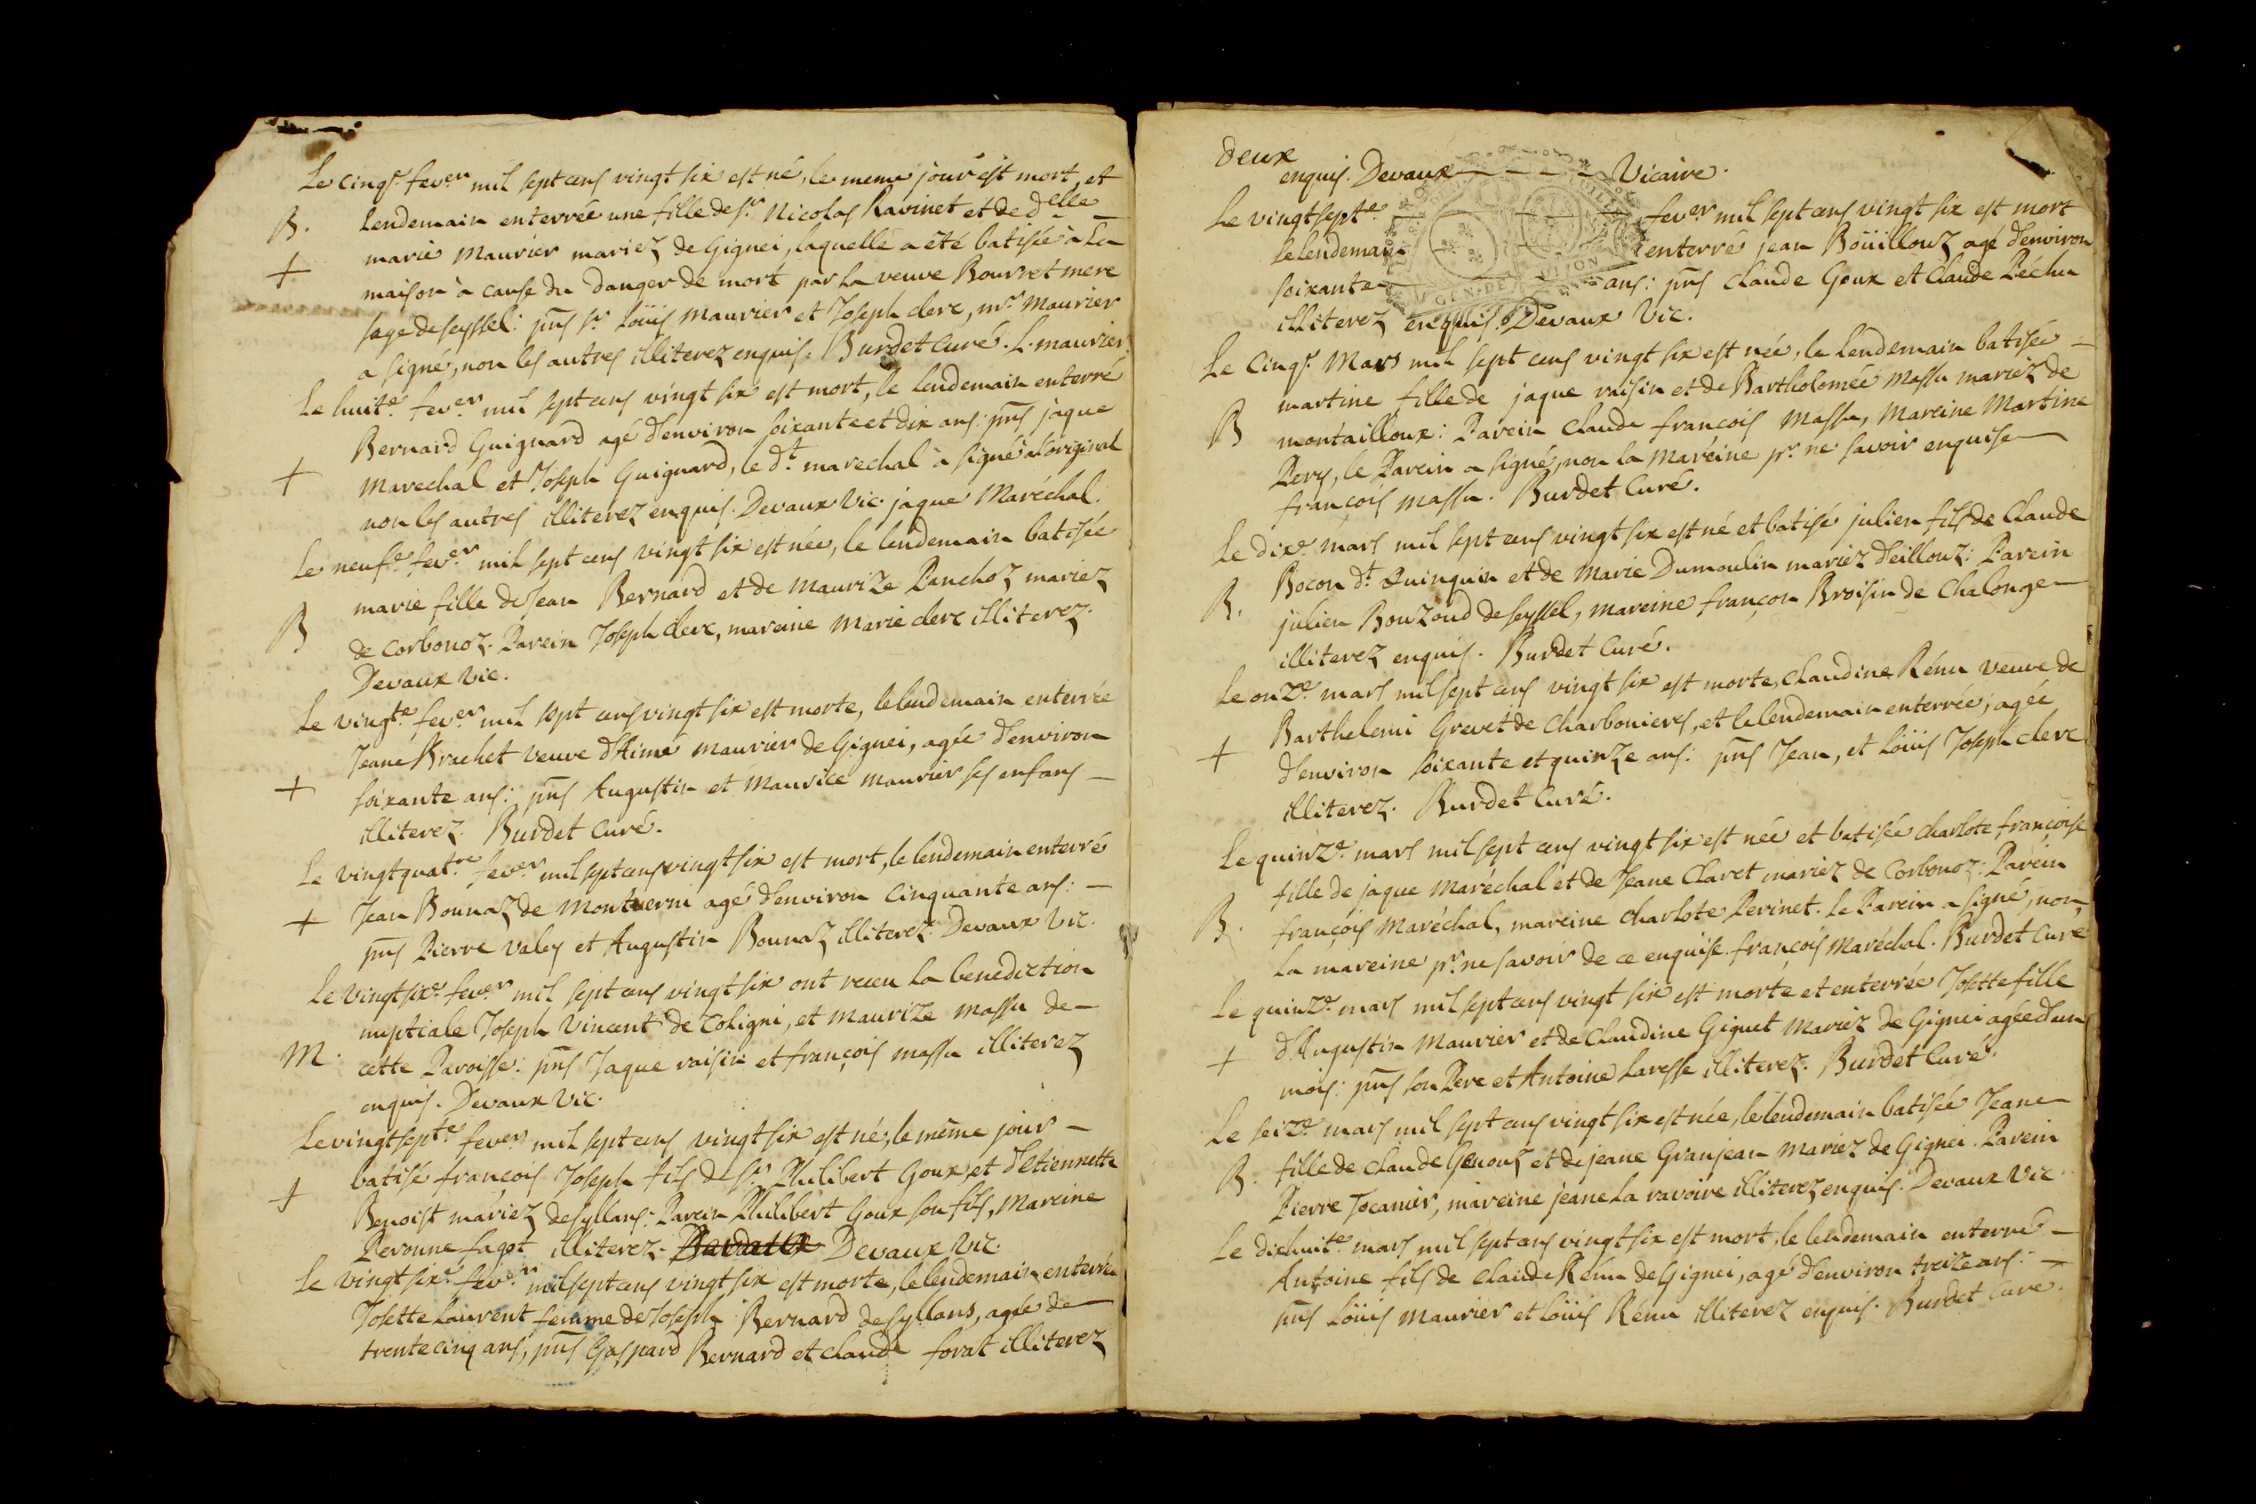 Le cinqe. fever mil sept cens vingt six est né, le meme jour est mort, et
B. lendemain enterrée une fille de sr. Nicolas Ravinet et de delle
marie Maurier mariez de Gignei, laquelle a été batisée à la
+ maison à cause du danger de mort par la veuve Bourret mere
sage de seyssel: pns sr. Loüis Maurier et Joseph clerc, mr. Maurier
a signé, non les autres illiterez enquis. Burdet Curé. L. maurier.
Le huite. fever. mil sept cens vingt six est mort, le lendemain enterré
Bernard Guignard agé d'environ soixante et dix ans: pns jaque
+ Marechal et Joseph Guignard, le dt. marechal à signé à l'original
non les autres illiterez enquis. Devaux Vic. jaque Maréchal.
Le neufe. fever. mil sept cens vingt six est née, le lendemain batisée
marie fille de Jean Bernard et de Maurize Panchoz mariez
B de Corbonoz. Parein Joseph clerc, mareine Marie clerc illiterez.
Devaux Vic.
Le vingte. fever. mil sept cens vingt six est morte, le lendemain enterrée
Jeane Brachet veuve d'Aimé Maurier de Gignei, agée d'environ
+ soixante ans: pns Augustin et Maurice Maurier ses enfans
illiterez. Burdet Curé.
Le vingt quatre. fever. mil sept cens vingt six est mort, le lendemain enterré
+ Jean Bonnaz de Montverni agé d'environ cinquante ans:
pns Pierre Valey et Augustin Bonnaz illiterez. Devaux Vic.
Le vingt sixe. fever. mil sept cens vingt six ont receu la benediction
nuptiale Joseph Vincent de Coligni, et Maurize Massu de
M. cette Paroisse: pns Jaque raisin et françois massu illiterez
enquis. Devaux Vic.
Le vingt septe. fever. mil sept cens vingt six est né, le même jour
batisé françois Joseph fils de sr. Philibert Goux, et d'Etiennette
+ Benoist mariez de syllans: Parein Philibert Goux son fils, Mareine
Peronne fagot illiterez. Devaux Vic.
Le vingt sixe. fever. mil sept cens vingt six est morte, le lendemain enterrée
Josette Laurent femme de Joseph Bernard de syllans, agée de
trente cinq ans, pns Gaspard Bernard et Claude forat illiterez
deux
enquis. Devaux Vicaire.
Le vingt septe. fever mil sept cens vingt six est mort
le lendemain enterré jean Boüillouz agé d'environ
soixante ans: pns Claude Goux et Claude Péchu
illiterez enquis. Devaux Vic.
GEN. DE DIION
Le Cinqe. Mars mil sept cens vingt six est née, le lendemain batisée
martine fille de jaque raisin et de Bartholomée Massu mariez de
B montailloux: Parein Claude françois Massu, Mareine Martine
Pery, le Parein a signé, non la Maréine pr. ne savoir enquise
françois massu. Burdet Curé.
Le dixe. mars mil sept cens vingt six est né et batisé julien fils de Claude
Bocon dt. Quinquin et de Marie Dumoulin mariez d'eillouz: Parein
B. julien Bouzoud de seyssel, mareine françon Broisin de Chalonge
illiterez enquis. Burdet Curé.
Le onze. mars mil sept cens vingt six est morte, Claudine Rénu veuve de
Barthelemi Grevet de Charbonieres, et le lendemain enterrée, agée
+ d'environ soixante et quinze ans: pns Jean, et Loüis Joseph clerc
illiterez. Burdet Curé.
Le quinze. mars mil sept cens vingt six est née et batisée charlote françoise
fille de jaque Maréchal et de Jeane Claret mariez de Corbonoz: Parein
B. françois Maréchal, mareine charlote Perinet. Le Parein a signé, non
la mareine pr. ne savoir de ce enquise. françois Maréchal. Burdet Curé
Le quinze. mars mil sept cens vingt six est morte et enterrée Josette fille
+ d'Augustin Maurier et de Claudine Giguet Mariez de Gignei agée d'un
mois: pns son Pere et Antoine Laresse illiterez. Burdet Curé.
Le seize. mars mil sept cens vingt six est née, le lendemain batisée Jeane
B. fille de Claude Genouz et de jeane Granjean Mariez de Gignei. Parein
Pierre Jocanier, mareine jeane La ravoire illiterez enquis. Devaux Vic.
Le dixhuite. mars mil sept cens vingt six est mort, le lendemain enterré
Antoine fils de Claude Rénu de Gignei, agé d'environ treize ans:
pns Loüis Maurier et Loüis Rénu illiterez enquis. Burdet Curé.